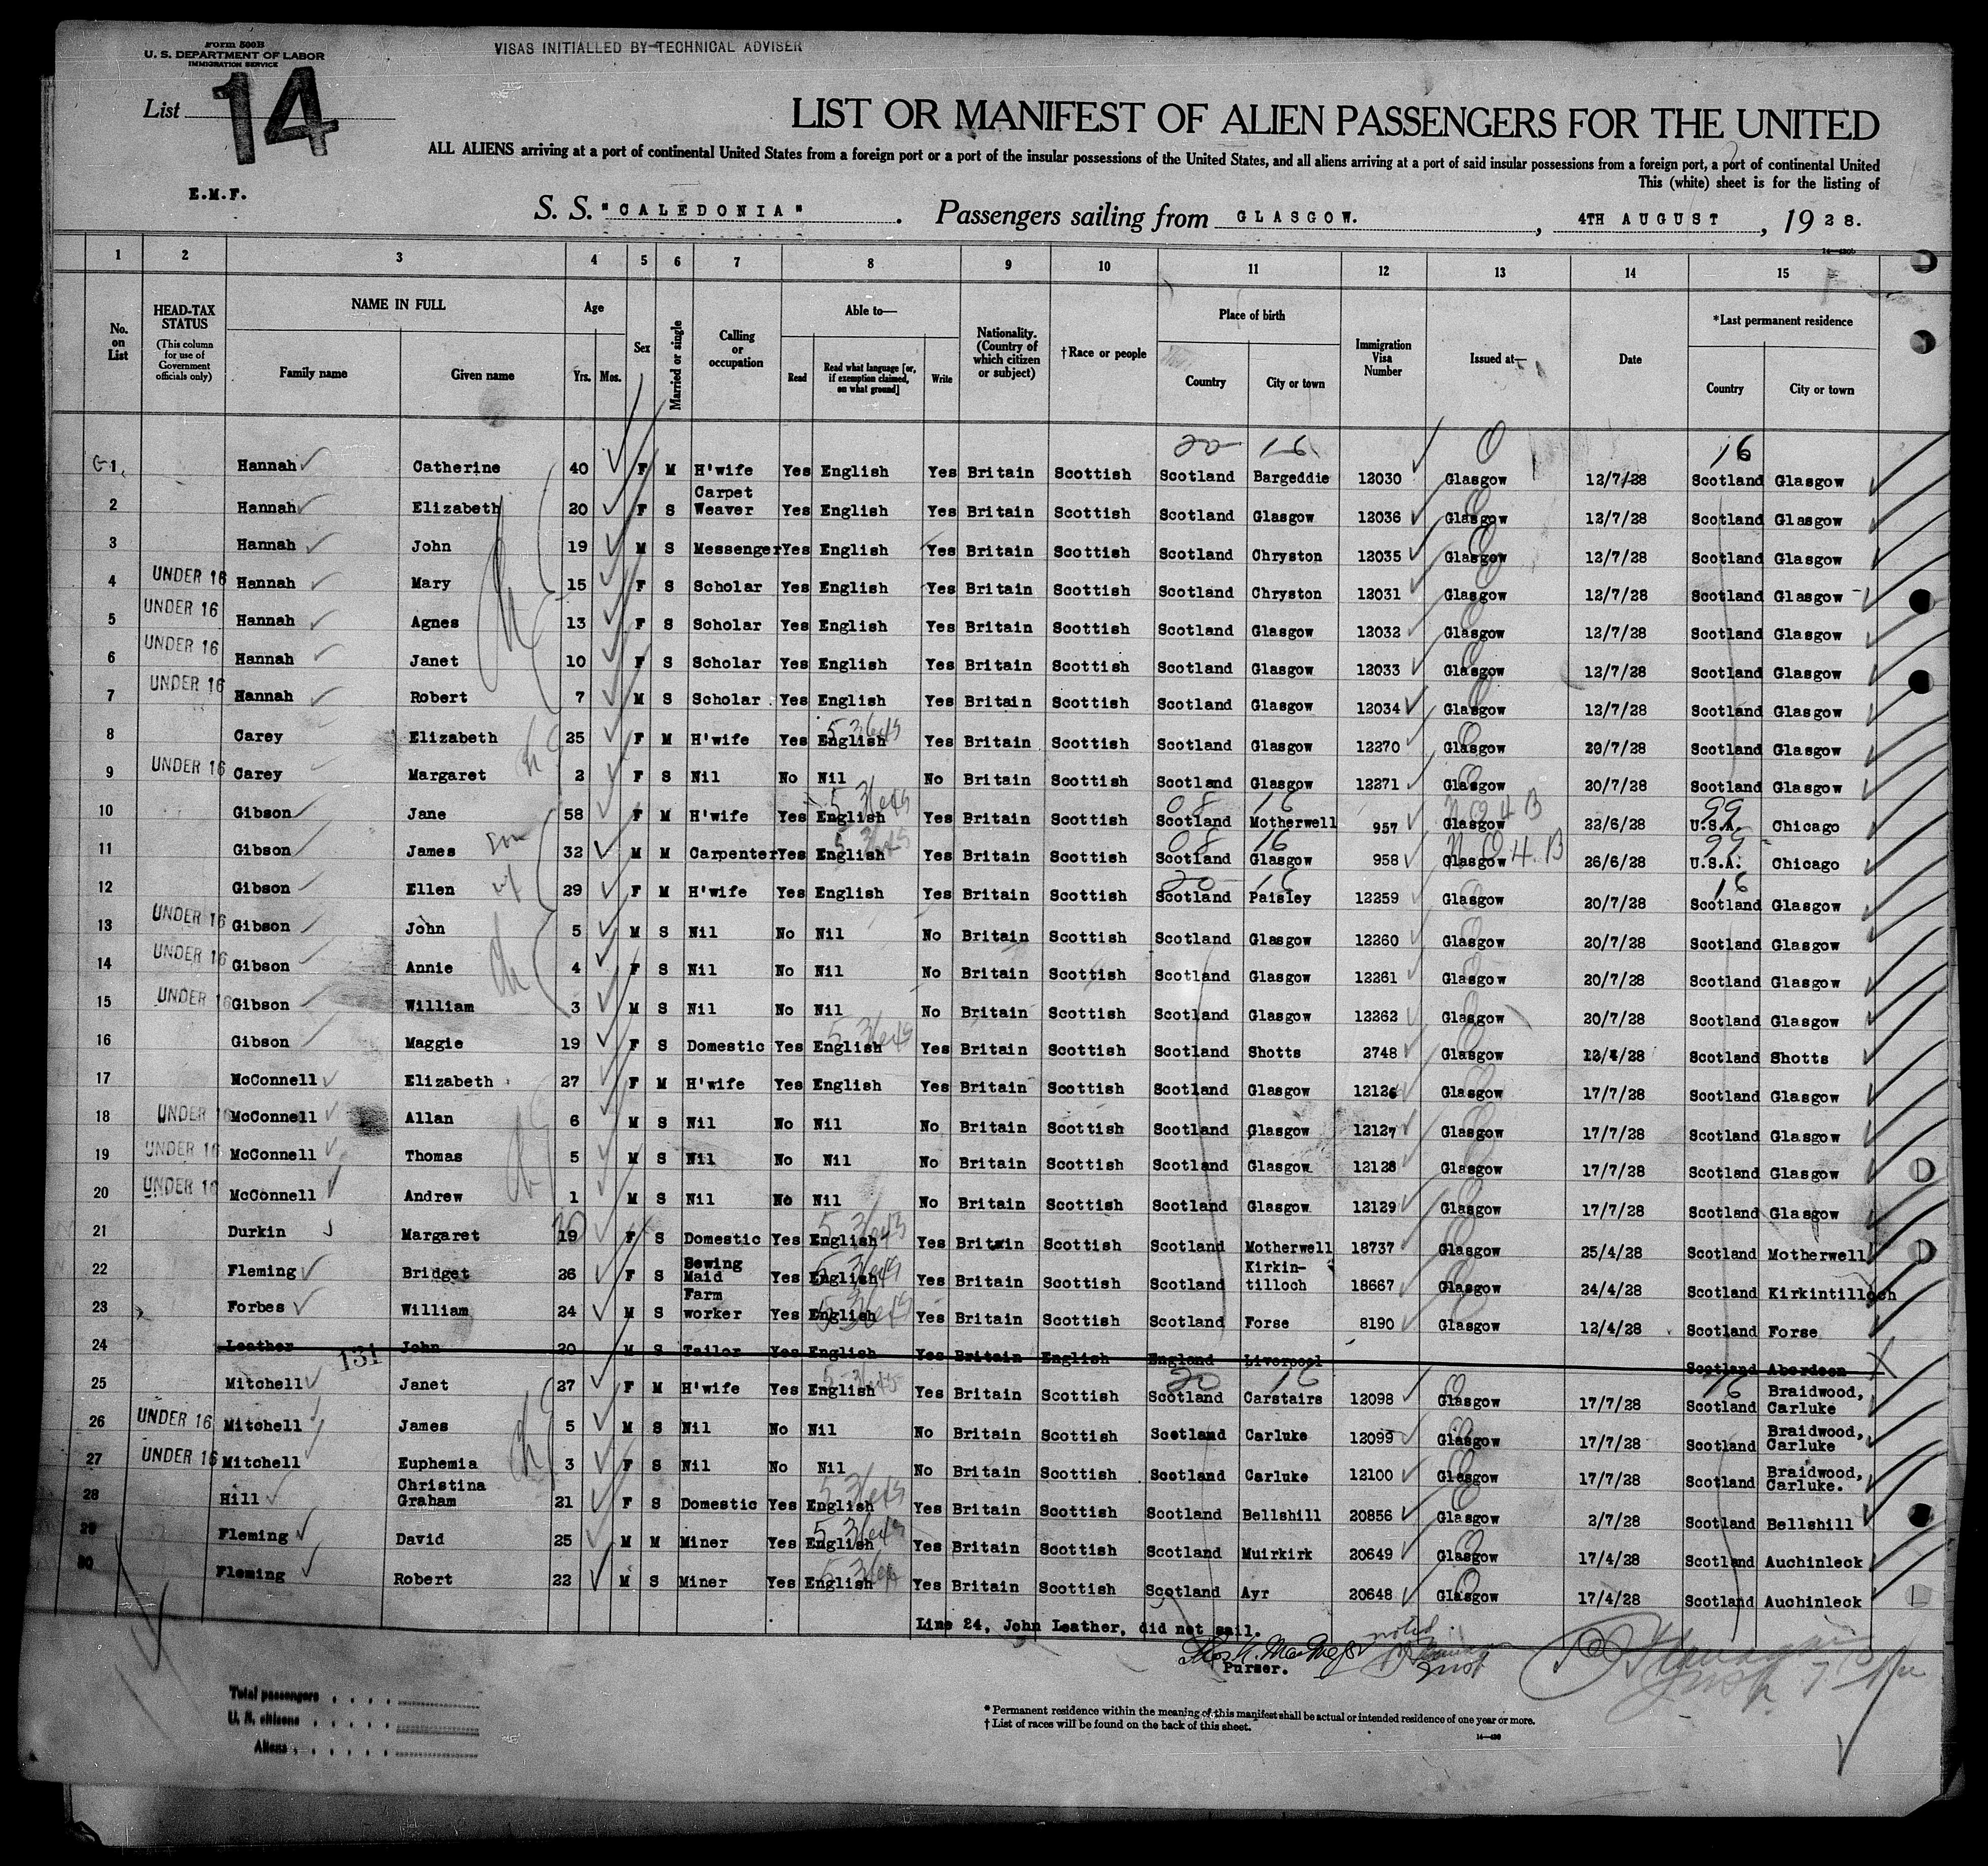 Form 500B
U. S. DEPARTMENT OF LABOR
IMMIGRATION SERVICE
VISAS INITIALLED BY TECHNICAL ADVISER
List 14
LIST OR MANIFEST OF ALIEN PASSENGERS FOR THE UNITED
ALL ALIENS arriving at a port of continental United States from a foreign port or a port of the insular possessions of the United States, and all aliens arriving at a port of said insular possessions from a foreign port, a port of continental United
This (white) sheet is for the listing of
E.M.F.
S. S. "CALEDONIA". Passengers sailing from GLASGOW. , 4TH AUGUST , 1928.
1 2 3 4 5 6 7 8 9 10 11 12 13 14 15
No. on List
HEAD-TAX STATUS (This column for use of Government officials only)
NAME IN FULL Family name Given name
Age Yrs. Mos.
Sex
Married or single
Calling or occupation
Able to— Read Read what language [or, if exemption claimed, on what ground] Write
Nationality. (Country of which citizen or subject)
†Race or people
Place of birth Country City or town
Immigration Visa Number
Issued at—
Date
*Last permanent residence Country City or town
20 16 16
1 Hannah Catherine 40 F M H'wife Yes English Yes Britain Scottish Scotland Bargeddie 12030 Glasgow 12/7/28 Scotland Glasgow
2 Hannah Elizabeth 20 F S Carpet Weaver Yes English Yes Britain Scottish Scotland Glasgow 12036 Glasgow 12/7/28 Scotland Glasgow
3 Hannah John 19 M S Messenger Yes English Yes Britain Scottish Scotland Chryston 12035 Glasgow 12/7/28 Scotland Glasgow
4 UNDER 16 Hannah Mary 15 F S Scholar Yes English Yes Britain Scottish Scotland Chryston 12031 Glasgow 12/7/28 Scotland Glasgow
5 UNDER 16 Hannah Agnes 13 F S Scholar Yes English Yes Britain Scottish Scotland Glasgow 12032 Glasgow 12/7/28 Scotland Glasgow
6 UNDER 16 Hannah Janet 10 F S Scholar Yes English Yes Britain Scottish Scotland Glasgow 12033 Glasgow 12/7/28 Scotland Glasgow
7 UNDER 16 Hannah Robert 7 M S Scholar Yes English Yes Britain Scottish Scotland Glasgow 12034 Glasgow 12/7/28 Scotland Glasgow
8 Carey Elizabeth 25 F M H'wife Yes English Yes Britain Scottish Scotland Glasgow 12270 Glasgow 20/7/28 Scotland Glasgow
9 UNDER 16 Carey Margaret 2 F S Nil No Nil No Britain Scottish Scotland Glasgow 12271 Glasgow 20/7/28 Scotland Glasgow
08 16 99
10 Gibson Jane 58 F M H'wife Yes English Yes Britain Scottish Scotland Motherwell 957 Glasgow 22/6/28 U.S.A. Chicago
08 16 99
11 Gibson James son 32 M M Carpenter Yes English Yes Britain Scottish Scotland Glasgow 958 Glasgow 26/6/28 U.S.A. Chicago
20 16 16
12 Gibson Ellen 29 F M H'wife Yes English Yes Britain Scottish Scotland Paisley 12259 Glasgow 20/7/28 Scotland Glasgow
13 UNDER 16 Gibson John 5 M S Nil No Nil No Britain Scottish Scotland Glasgow 12260 Glasgow 20/7/28 Scotland Glasgow
14 UNDER 16 Gibson Annie 4 F S Nil No Nil No Britain Scottish Scotland Glasgow 12261 Glasgow 20/7/28 Scotland Glasgow
15 UNDER 16 Gibson William 3 M S Nil No Nil No Britain Scottish Scotland Glasgow 12262 Glasgow 20/7/28 Scotland Glasgow
16 Gibson Maggie 19 F S Domestic Yes English Yes Britain Scottish Scotland Shotts 2748 Glasgow 12/4/28 Scotland Shotts
17 McConnell Elizabeth 27 F M H'wife Yes English Yes Britain Scottish Scotland Glasgow 12126 Glasgow 17/7/28 Scotland Glasgow
18 UNDER 16 McConnell Allan 6 M S Nil No Nil No Britain Scottish Scotland Glasgow 12127 Glasgow 17/7/28 Scotland Glasgow
19 UNDER 16 McConnell Thomas 5 M S Nil No Nil No Britain Scottish Scotland Glasgow 12128 Glasgow 17/7/28 Scotland Glasgow
20 UNDER 16 McConnell Andrew 1 M S Nil No Nil No Britain Scottish Scotland Glasgow 12129 Glasgow 17/7/28 Scotland Glasgow
21 Durkin Margaret 19 F S Domestic Yes English Yes Britain Scottish Scotland Motherwell 18737 Glasgow 25/4/28 Scotland Motherwell
22 Fleming Bridget 26 F S Sewing Maid Yes English Yes Britain Scottish Scotland Kirkin-tilloch 18667 Glasgow 24/4/28 Scotland Kirkintilloch
23 Forbes William 24 M S Farm worker Yes English Yes Britain Scottish Scotland Forse 8190 Glasgow 12/4/28 Scotland Forse
24 Leather John 20 M S Tailor Yes English Yes Britain English England Liverpool Scotland Aberdeen
131 20 16 16
25 Mitchell Janet 27 F M H'wife Yes English Yes Britain Scottish Scotland Carstairs 12098 Glasgow 17/7/28 Scotland Braidwood, Carluke
26 UNDER 16 Mitchell James 5 M S Nil No Nil No Britain Scottish Scotland Carluke 12099 Glasgow 17/7/28 Scotland Braidwood, Carluke
27 UNDER 16 Mitchell Euphemia 3 F S Nil No Nil No Britain Scottish Scotland Carluke 12100 Glasgow 17/7/28 Scotland Braidwood, Carluke.
28 Hill Christina Graham 21 F S Domestic Yes English Yes Britain Scottish Scotland Bellshill 20856 Glasgow 2/7/28 Scotland Bellshill
29 Fleming David 25 M M Miner Yes English Yes Britain Scottish Scotland Muirkirk 20649 Glasgow 17/4/28 Scotland Auchinleck
30 Fleming Robert 22 M S Miner Yes English Yes Britain Scottish Scotland Ayr 20648 Glasgow 17/4/28 Scotland Auchinleck
Line 24, John Leather, did not sail.
noted
Purser.
Total passengers
U. S. citizens
Aliens
* Permanent residence within the meaning of this manifest shall be actual or intended residence of one year or more.
† List of races will be found on the back of this sheet.